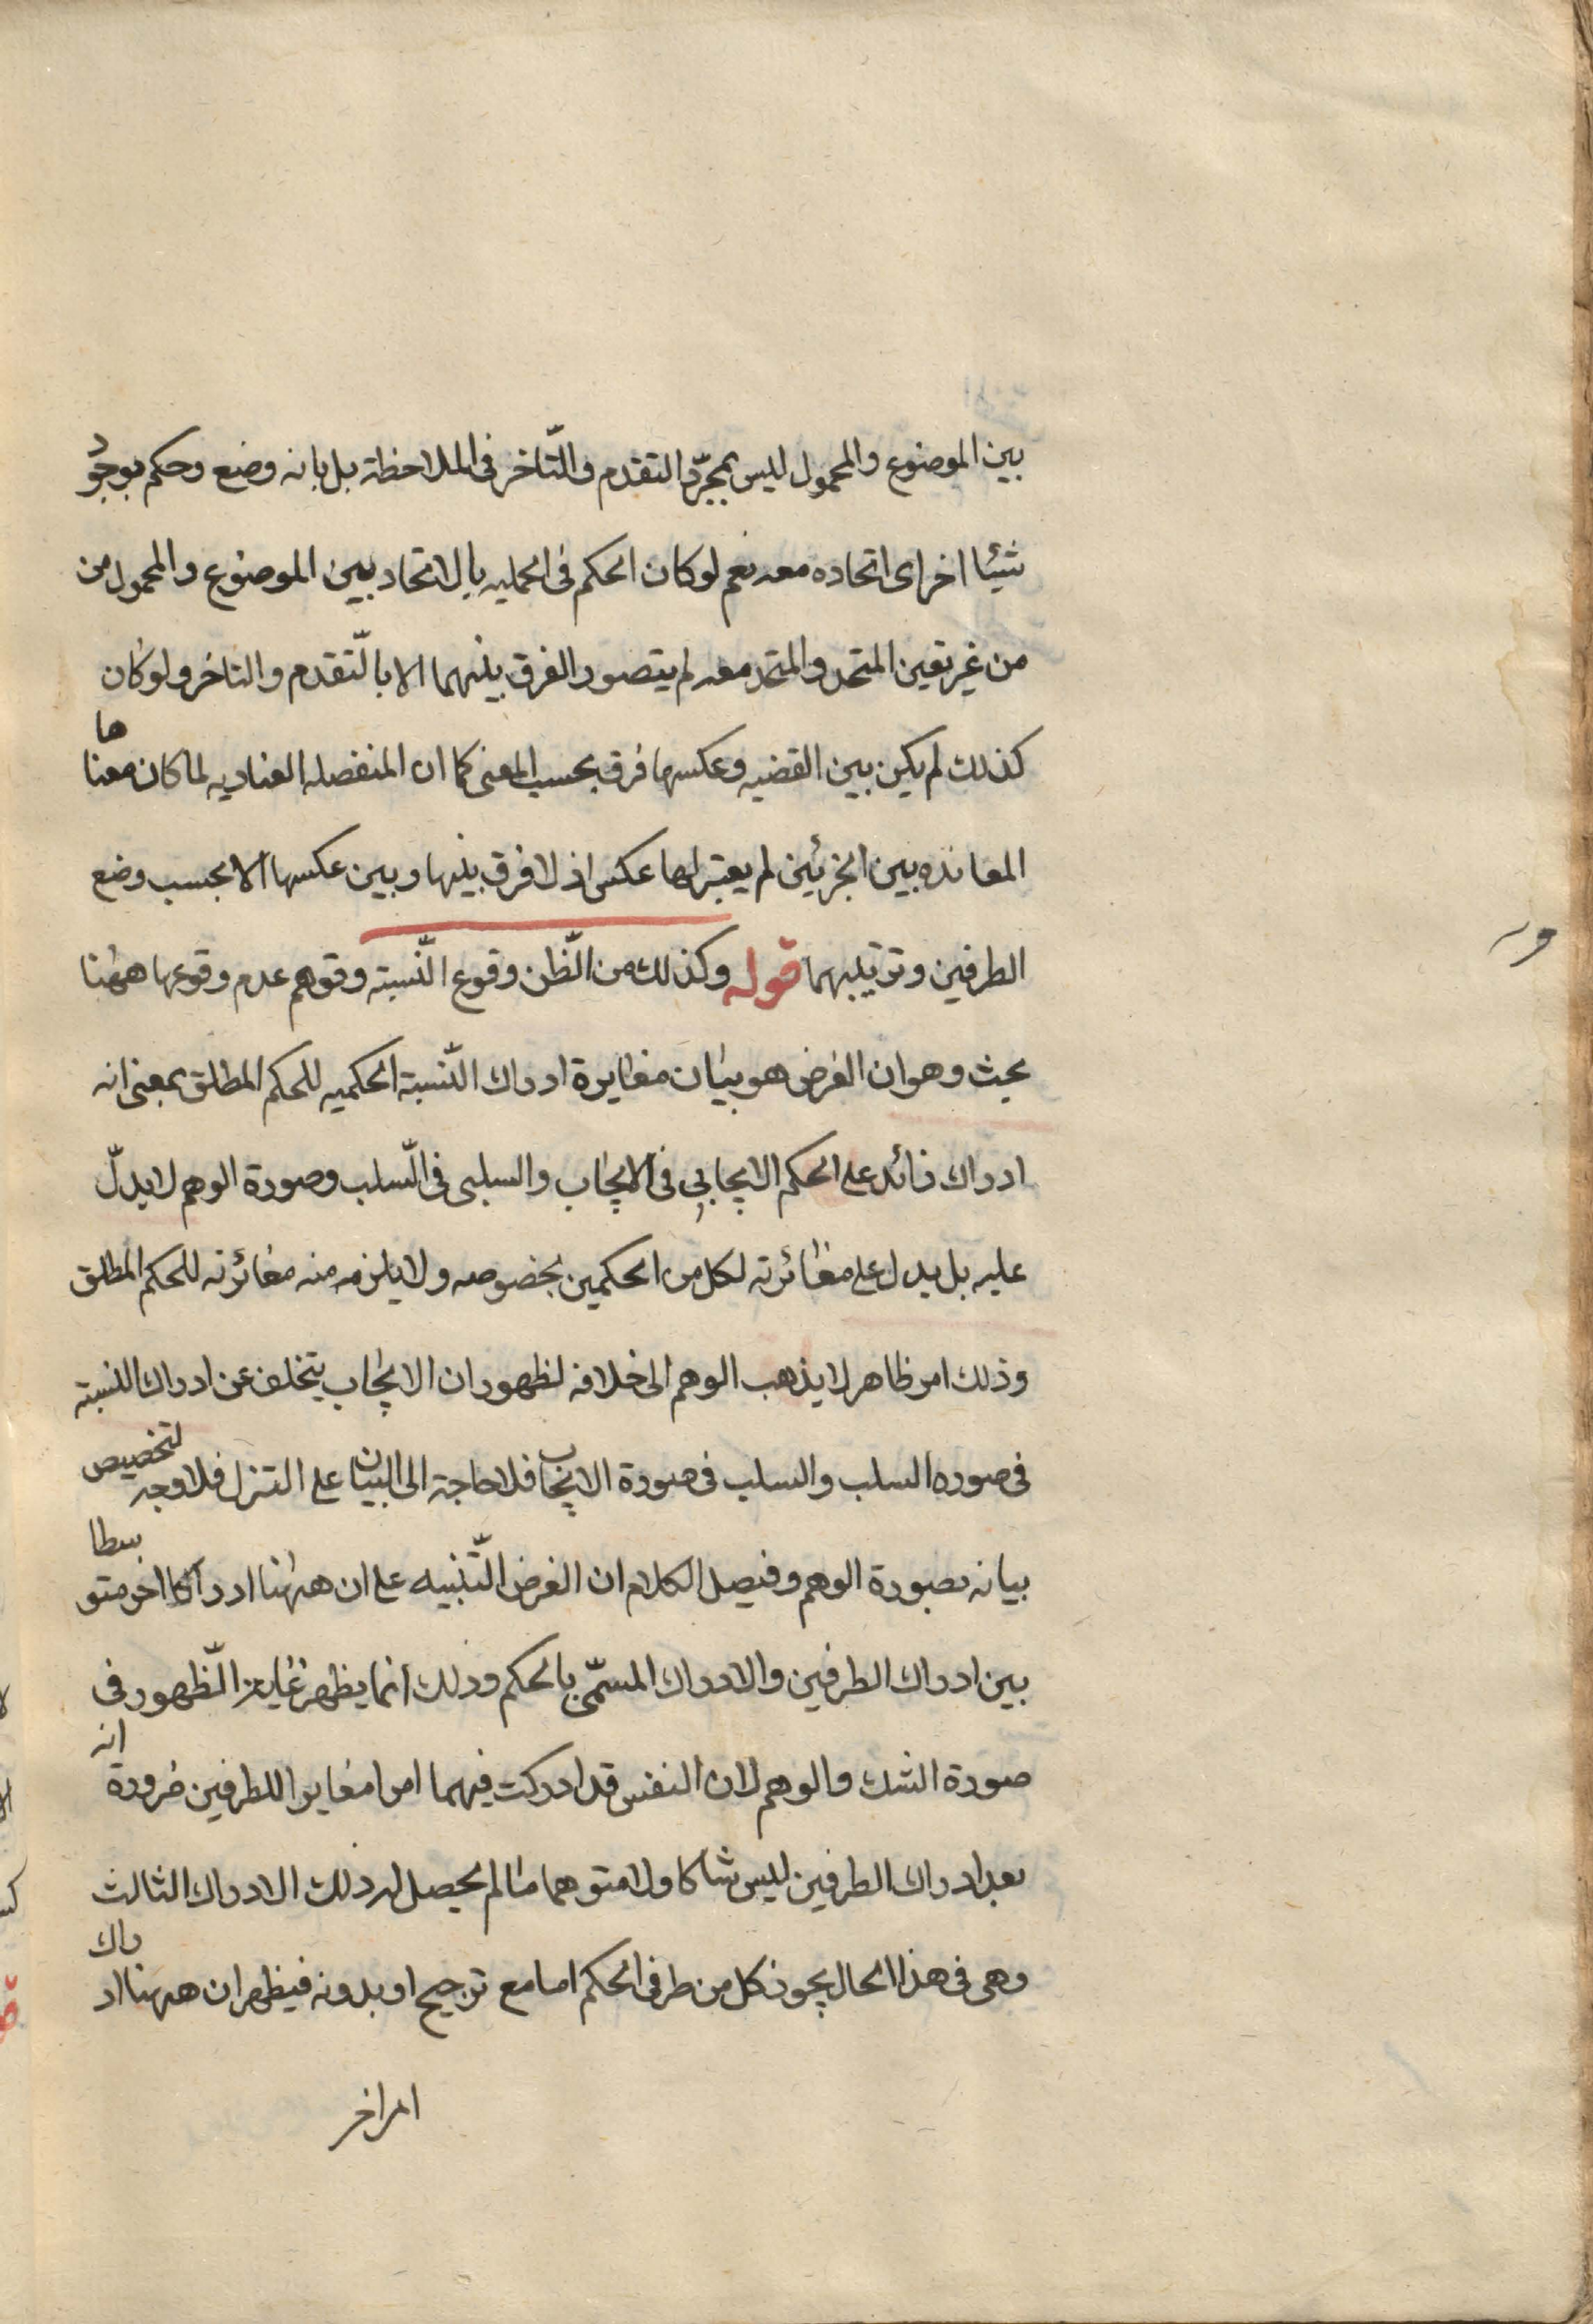 بين الموضوع والمحمول ليس بمجرّد التقدم والتّاخر فى الملاحظة بل بانه وضع وحكم بوجود
شيئا اخراى اتحاده معه نعم لوكان الحكم فى الحمليه بالاتحاد بين الموضوع والمحمول من
من غير تعين المتحد والمتحد معه لم يتصور الفرق بينهما الا بالتّقدم والتاخر ولوكان
كذلك لم يكن بين القضيه وعكسها فرق بحسب المعنى كما ان المنفصله العناديه لما كان معناها
المعانده بين الجزئين لم يعتبر لها عكس اذ لا فرق بينها وبين عكسها الا بحسب وضع
الطرفين وترتيبهما قوله وكذلك من الظّن وقوع النّسبته وتوهم عدم وقوعها ههنا
بحث وهو ان الغرض هو بيان مغايرة ادراك النّسبة الحكميه للحكم المطلق بمعنى انه
ادراك زائد على الحكم الايجابي فى الايجاب والسلبى فى السّلب وصورة الوهم لا يدلّ
عليه بل يدل على مغائرته لكل من الحكمين بخصوصه ولا يلزمه منه مغائرته للحكم المطلق
وذلك امر ظاهر لا يذهب الوهم الى خلافه لظهور ان الايجاب يتخلف عن ادراك النسبته
فى صوره السلب والسلب فى صورة الايجاب فلا حاجة الى البيان على التنزل فلا وجه لتخصيص
بيانه بصورة الوهم وفيصل الكلام ان الغرض التّنبيه على ان ههنا ادراكا اخر متوسطا
بين ادراك الطرفين والادراك المسمّى بالحكم وذلك انما يظهر غاية الظّهور فى
صورة الشك والوهم لان النفس قد ادركت فيهما امرا مغايرا للطرفين ضرورة انه
بعد ادراك الطرفين ليس شاكا ولا متوهما مالم يحصل له ذلك الادراك الثالث
وهى فى هذا الحال يجوز كل من طرفى الحكم اما مع ترجيح او بدونه فيظهر ان ههنا ادراك
امراخر